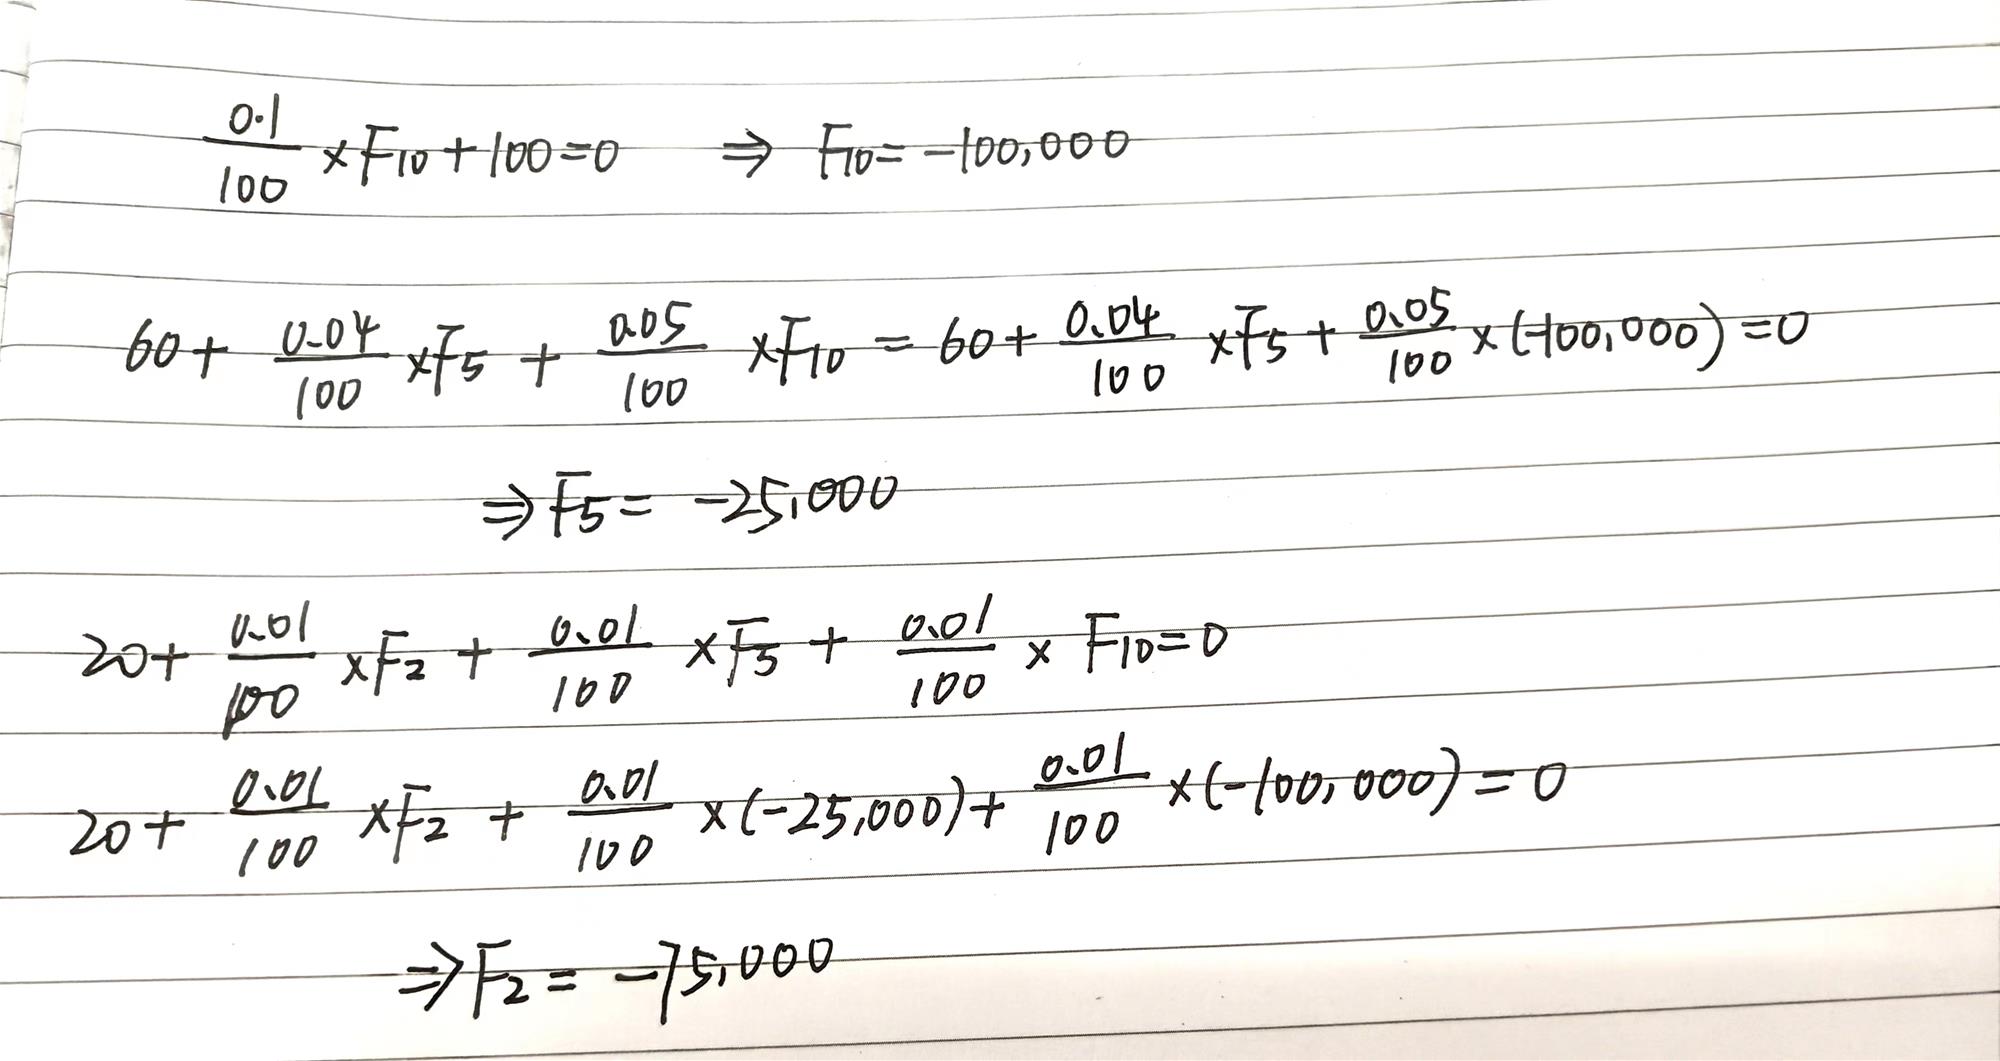 0.1/100 × F10 + 100 = 0 ⇒ F10 = -100,000
60 + 0.04/100 × F5 + 0.05/100 × F10 = 60 + 0.04/100 × F5 + 0.05/100 × (-100,000) = 0
⇒ F5 = -25,000
20 + 0.01/100 × F2 + 0.01/100 × F5 + 0.01/100 × F10 = 0
20 + 0.01/100 × F2 + 0.01/100 × (-25,000) + 0.01/100 × (-100,000) = 0
⇒ F2 = -75,000